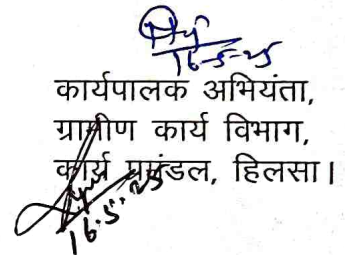 16-5-25
कार्यपालक अभियंता,
ग्रामीण कार्य विभाग,
कार्य प्रमंडल, हिलसा।
16.5.25